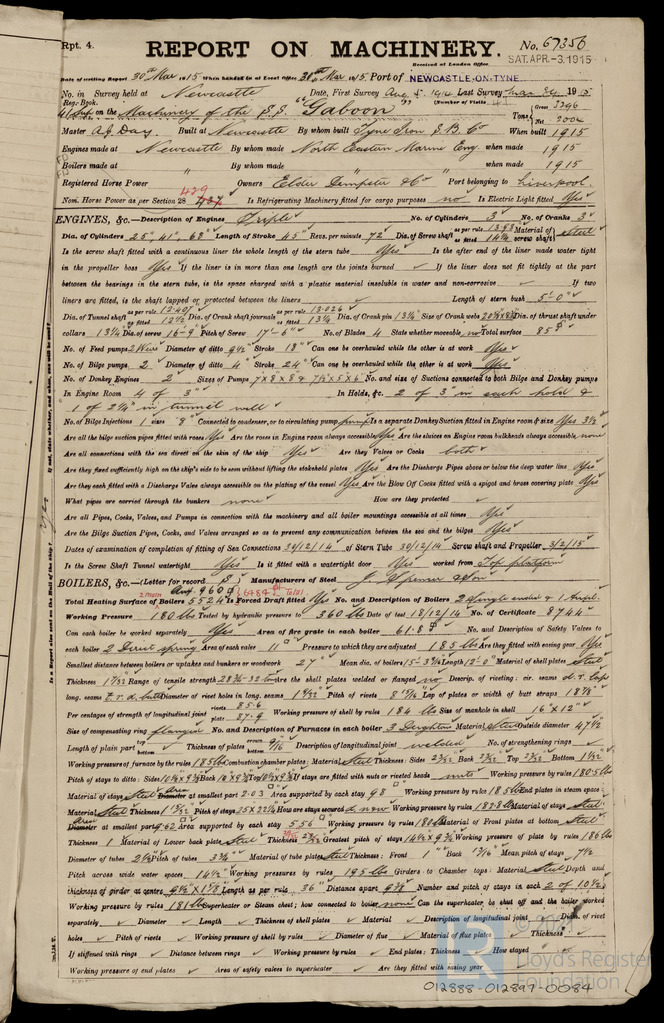 Rpt. 4. REPORT ON MACHINERY. No. 67356
Received at London Office SAT. APR. -3. 1915
Date of writing Report 30th Mar 1915 When handed in at Local Office 30th Mar 1915 Port of NEWCASTLE-ON-TYNE
No. in Survey held at Newcastle Date, First Survey Aug Last Survey 1915
Reg. Book. (Number of Visits 41)
on the Machinery of the S.S. "Gaboon" Tons Gross 3296 Net 2002
Master A.J. Day Built at Newcastle By whom built Tyne Iron S.B. Co When built 1915
Engines made at Newcastle By whom made North Eastern Marine Eng. when made 1915
Boilers made at " By whom made " when made 1915
Registered Horse Power Owners Elder Dempster & Co Port belonging to Liverpool
Nom. Horse Power as per Section 28 429 Is Refrigerating Machinery fitted for cargo purposes no Is Electric Light fitted Yes
ENGINES, &c.—Description of Engines Triple No. of Cylinders 3 No. of Cranks 3
Dia. of Cylinders 25", 41", 68" Length of Stroke 45" Revs. per minute 72 Dia. of Screw shaft as per rule 13.98 as fitted 14¾ Material of screw shaft Steel
Is the screw shaft fitted with a continuous liner the whole length of the stern tube Yes Is the after end of the liner made water tight
in the propeller boss Yes If the liner is in more than one length are the joints burned ✓ If the liner does not fit tightly at the part
between the bearings in the stern tube, is the space charged with a plastic material insoluble in water and non-corrosive ✓ If two
liners are fitted, is the shaft lapped or protected between the liners ✓ Length of stern bush 5'-0"
Dia. of Tunnel shaft as per rule 12.407 as fitted 12½ Dia. of Crank shaft journals as per rule 13.026 as fitted 13¼ Dia. of Crank pin 13¼ Size of Crank webs Dia. of thrust shaft under
collars 13¼ Dia. of screw 16-9 Pitch of Screw 17'-6" No. of Blades 4 State whether moveable no Total surface 85
No. of Feed pumps 2 Weirs Diameter of ditto 9½ Stroke 18" Can one be overhauled while the other is at work Yes
No. of Bilge pumps 2 Diameter of ditto 4" Stroke 24" Can one be overhauled while the other is at work Yes
No. of Donkey Engines 2 Sizes of Pumps 7x8x8 & 7½x5x6 No. and size of Suctions connected to both Bilge and Donkey pumps
In Engine Room 4 of 3" In Holds, &c. 2 of 3" in each hold &
1 of 2¾" in tunnel well
No. of Bilge Injections 1 sizes 8" Connected to condenser, or to circulating pump pump Is a separate Donkey Suction fitted in Engine room & size Yes 3½
Are all the bilge suction pipes fitted with roses Yes Are the roses in Engine room always accessible Yes Are the sluices on Engine room bulkheads always accessible none
Are all connections with the sea direct on the skin of the ship Yes Are they Valves or Cocks both
Are they fixed sufficiently high on the ship's side to be seen without lifting the stokehold plates Yes Are the Discharge Pipes above or below the deep water line Yes
Are they each fitted with a Discharge Valve always accessible on the plating of the vessel Yes Are the Blow Off Cocks fitted with a spigot and brass covering plate Yes
What pipes are carried through the bunkers none How are they protected ✓
Are all Pipes, Cocks, Valves, and Pumps in connection with the machinery and all boiler mountings accessible at all times Yes
Are the Bilge Suction Pipes, Cocks, and Valves arranged so as to prevent any communication between the sea and the bilges Yes
Dates of examination of completion of fitting of Sea Connections 30/12/14 of Stern Tube 30/12/14 Screw shaft and Propeller 3/2/15
Is the Screw Shaft Tunnel watertight Yes Is it fitted with a watertight door Yes worked from Top platform
BOILERS, &c.—(Letter for record S) Manufacturers of Steel J. Spencer & Son
Total Heating Surface of Boilers 5524 Is Forced Draft fitted Yes No. and Description of Boilers 2 Single ended & 1 Auxl.
Working Pressure 180 lbs Tested by hydraulic pressure to 360 lbs Date of test 18/12/14 No. of Certificate 8744
Can each boiler be worked separately Yes Area of fire grate in each boiler 61.8 No. and Description of Safety Valves to
each boiler 2 Direct spring Area of each valve 11 Pressure to which they are adjusted 185 lbs Are they fitted with easing gear Yes
Smallest distance between boilers or uptakes and bunkers or woodwork 27" Mean dia. of boilers 15-3 Length 12'-0" Material of shell plates Steel
Thickness Range of tensile strength Are the shell plates welded or flanged no Descrip. of riveting: cir. seams d.r. lap
long. seams t.r.d. butt Diameter of rivet holes in long. seams Pitch of rivets Lap of plates or width of butt straps
Per centages of strength of longitudinal joint rivets 85.6 plate 87.9 Working pressure of shell by rules 184 lbs Size of manhole in shell 16" x 12"
Size of compensating ring flanged No. and Description of Furnaces in each boiler 3 Deightons Material Steel Outside diameter 47½
Length of plain part top bottom Thickness of plates crown bottom 9/16 Description of longitudinal joint welded No. of strengthening rings ✓
Working pressure of furnace by the rules 185 lbs Combustion chamber plates: Material Steel Thickness: Sides 23/32 Back 23/32 Top 23/32 Bottom
Pitch of stays to ditto: Sides Back Top If stays are fitted with nuts or riveted heads nuts Working pressure by rules 180.5 lbs
Material of stays Steel Area at smallest part 2.03 Area supported by each stay 98 Working pressure by rules 185 lbs End plates in steam space:
Material Steel Thickness Pitch of stays How are stays secured Working pressure by rules 182.8 lbs Material of stays Steel
Area at smallest part Area supported by each stay 556 Working pressure by rules 180 lbs Material of Front plates at bottom Steel
Thickness 1 Material of Lower back plate Steel Thickness Greatest pitch of stays Working pressure of plate by rules 186 lbs
Diameter of tubes 2½ Pitch of tubes 3¾" Material of tube plates Steel Thickness: Front 1" Back 13/16" Mean pitch of stays 7½
Pitch across wide water spaces 14½" Working pressures by rules 195 lbs Girders to Chamber tops: Material Steel Depth and
thickness of girder at centre Length as per rule 36" Distance apart 9¾" Number and pitch of stays in each 2 of 10½"
Working pressure by rules 181 lbs Superheater or Steam chest; how connected to boiler none Can the superheater be shut off and the boiler worked
separately ✓ Diameter ✓ Length ✓ Thickness of shell plates ✓ Material ✓ Description of longitudinal joint ✓ Diam. of rivet
holes ✓ Pitch of rivets ✓ Working pressure of shell by rules ✓ Diameter of flue ✓ Material of flue plates ✓ Thickness ✓
If stiffened with rings ✓ Distance between rings ✓ Working pressure by rules ✓ End plates: Thickness ✓ How stayed ✓
Working pressure of end plates ✓ Area of safety valves to superheater ✓ Are they fitted with easing gear ✓
Lloyd's Register
Foundation
012888-012897-0084